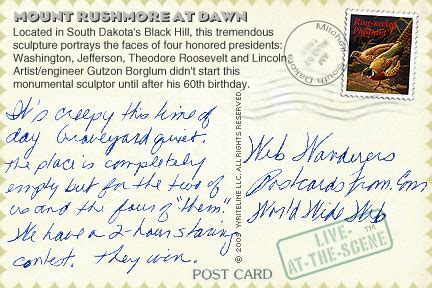 MOUNT RUSHMORE AT DAWN
Located in South Dakota's Black Hill, this tremendous
sculpture portrays the faces of four honored presidents:
Washington, Jefferson, Theodore Roosevelt and Lincoln
Artist/engineer Gutzon Borglum didn't start this
monumental sculptor until after his 60th birthday.
It's creepy this time of
day. Graveyard quiet.
The place is completely
empty but for the two of
us and the four of "them."
We have a 2-hour staring
contest. They win.
© 2009 WRITELINE LLC. ALL RIGHTS RESERVED
POST CARD
Mitchell, South Dakota
AM
Ring-necked
Pheasant
Web Wanderers
Postcards From.Com
World Wide Web
LIVE-
AT-THE-SCENE™